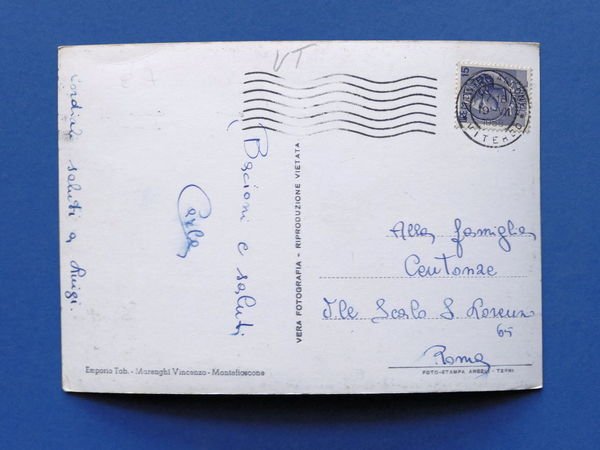 VT
15
VITERBO
Cordiali saluti a Luigi.
Bacioni e saluti
Carla
VERA FOTOGRAFIA - RIPRODUZIONE VIETATA
Alla famiglia
Centonze
Scalo S. Lorenzo
65
Roma
Emporio Tab. - Marenghi Vincenzo - Montefiascone
FOTO-STAMPA - TERNI